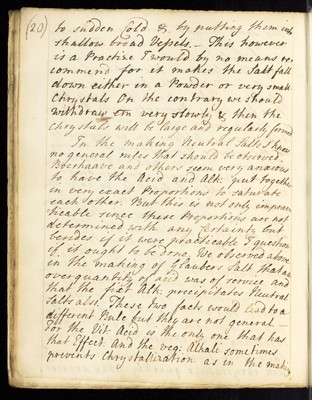 (20)
to sudden Cold & by putting them into
shallow broad Vessels. — This however
is a Practice I would by no means re=
commend for it makes the Salt fall
down either in a Powder or very small
Chrystals On the contrary we should
withdraw on very slowly & then the
chrystals will be large and regularly formed
In the making Neutral Salts I know
no general rules that should be observed.
Boerhaave and others seem very anxious
to have the Acid and Alk: put together
in very exact Proportions to saturate
each other. But this is not only imprac=
ticable since these Proportions are not
determined with any certainty but
besides if it were practicable I question
if it ought to be done. We observed above
in the making of Glaubers Salt that an
over quantity of acid was of service and
that the fixt Alk: precipitates Neutral
Salts also. These two facts would lead to a
different Rule but they are not general —
For the Vit: Acid is the only one that has
that Effect. And the veg: Alkali sometimes
prevents Chrystallization as in the making